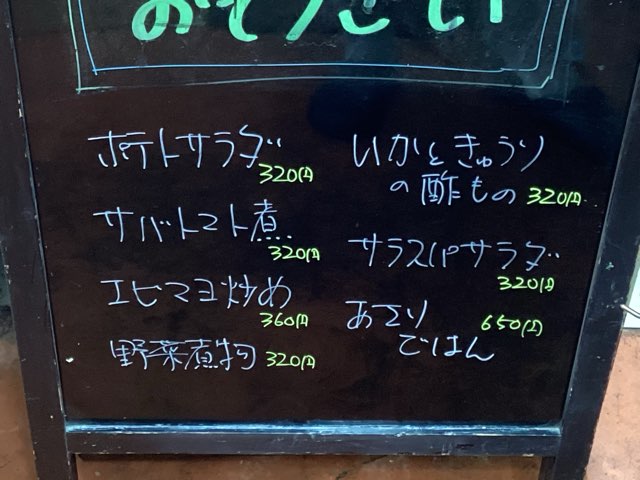 おそうざい
ポテトサラダ
320円
サバトマト煮
320円
エビマヨ炒め
360円
野菜煮物 320円
いかときゅうり
の酢もの 320円
サラスパサラダ
320円
あさり 650円
ごはん